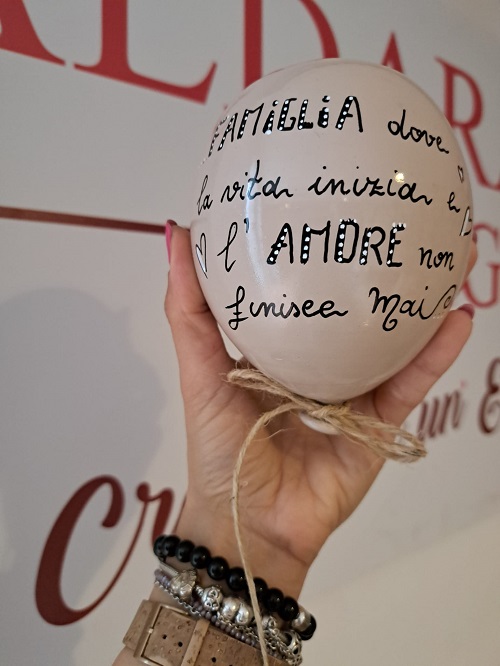 FAMiGLiA dove
la vita inizia e
l' AMORE non
finisce Mai
ALDARA
un'
Cr